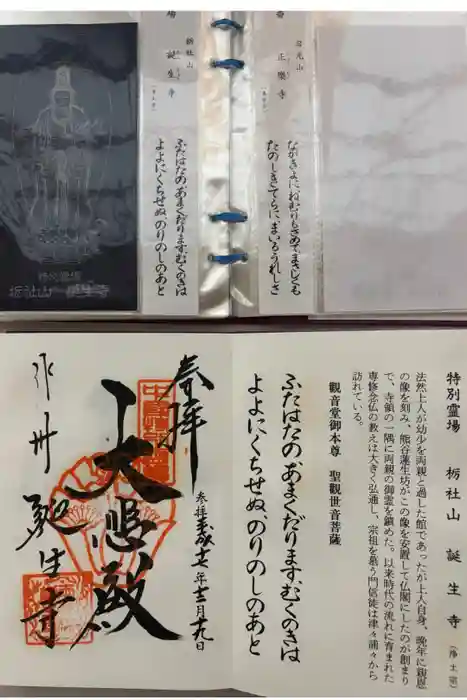 岩光山
正樂寺
ながきよにねむりもさめてまさしくも
たのしきてらにまいるうれしさ
栃社山
誕生寺
ふたはたのあまくだりますむくのきは
よよにくちせぬ、のりのしのあと
特別霊場
栃社山 誕生寺
特別霊場 栃社山 誕生寺 (浄土宗)
法然上人が幼少を両親と過した館であったが上人自身、晩年に親恩
の像を刻み、熊谷蓮生坊がこの像を安置して仏閣にしたのが創まり
で、寺領の一隅に両親の御霊を鎮めた。以来時代の流れに育まれた
専修念仏の教えは大きく弘通し、宗祖を慕う門信徒は津々浦々から
訪れている。
観音堂御本尊 聖観世音菩薩
ふたはたのあまくだりますむくのきは
よよにくちせぬ、のりのしのあと
奉拝
参拝平成十七年十二月十九日
大悲殿
作州
誕生寺